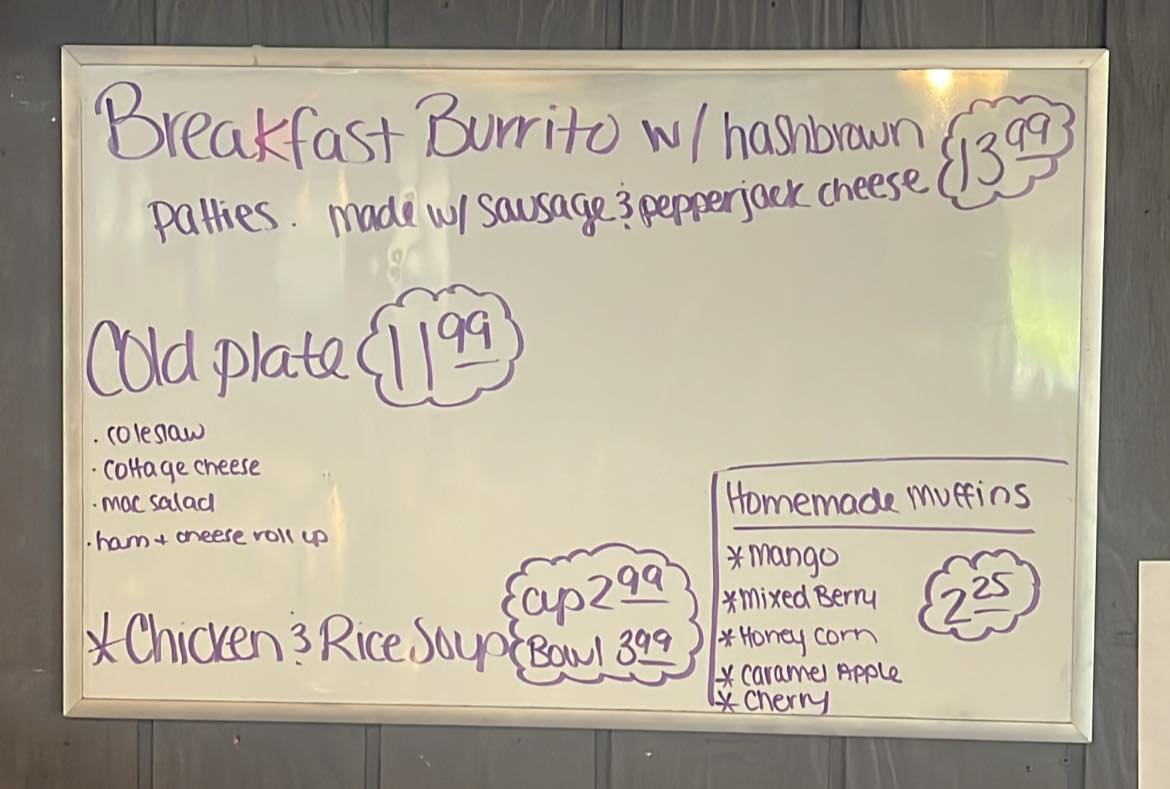 Breakfast Burrito w/ hashbrown 13 99
patties. made w/ sausage & pepperjack cheese
Cold plate 11 99
· coleslaw
· cottage cheese
· mac salad
· ham + cheese roll up
* Chicken & Rice Soup
cup 2 99
Bowl 3 99
Homemade muffins
* mango
* mixed Berry
* Honey corn
* caramel Apple
* cherry
2 25